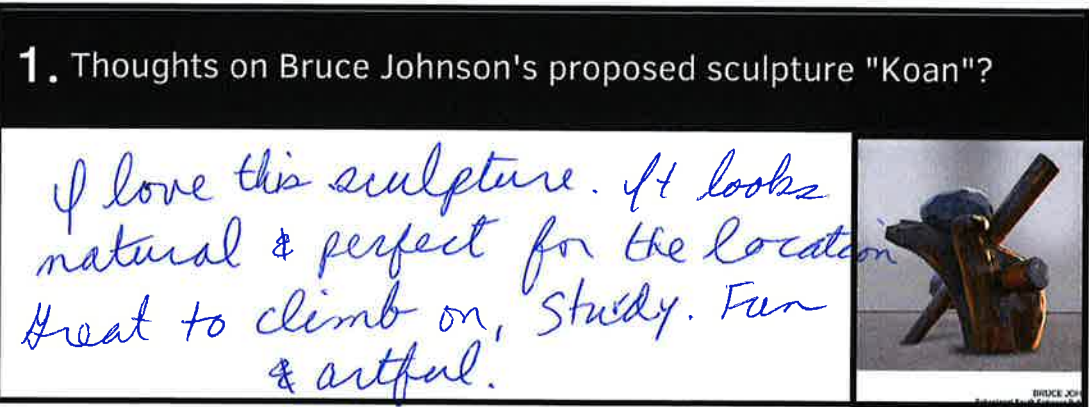 1. Thoughts on Bruce Johnson's proposed sculpture "Koan"?
I love this sculpture. It looks
natural & perfect for the location
Great to climb on, Study. Fun
& artful.